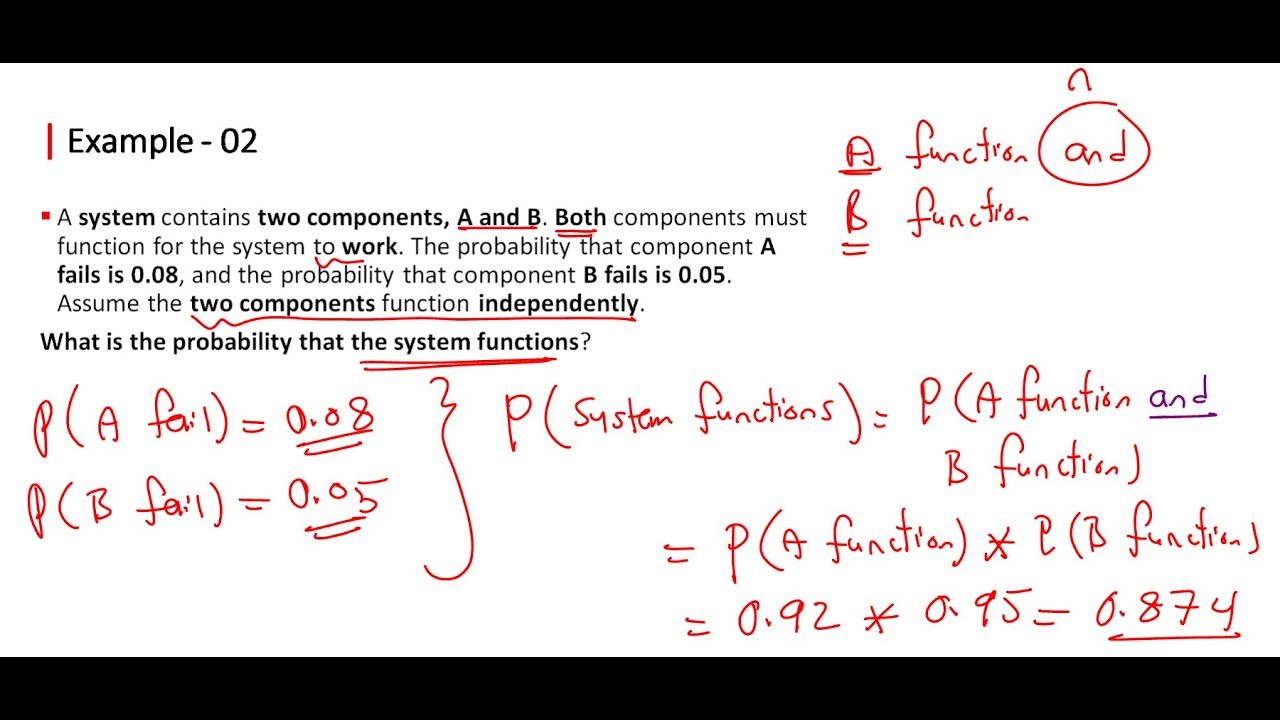 Example - 02
A system contains two components, A and B. Both components must
function for the system to work. The probability that component A
fails is 0.08, and the probability that component B fails is 0.05.
Assume the two components function independently.
What is the probability that the system functions?
∩
A function and
B function
P(A fail) = 0.08
P(B fail) = 0.05
}
P(System functions) = P(A function and
B function)
= P(A function) * P(B function)
= 0.92 * 0.95 = 0.874